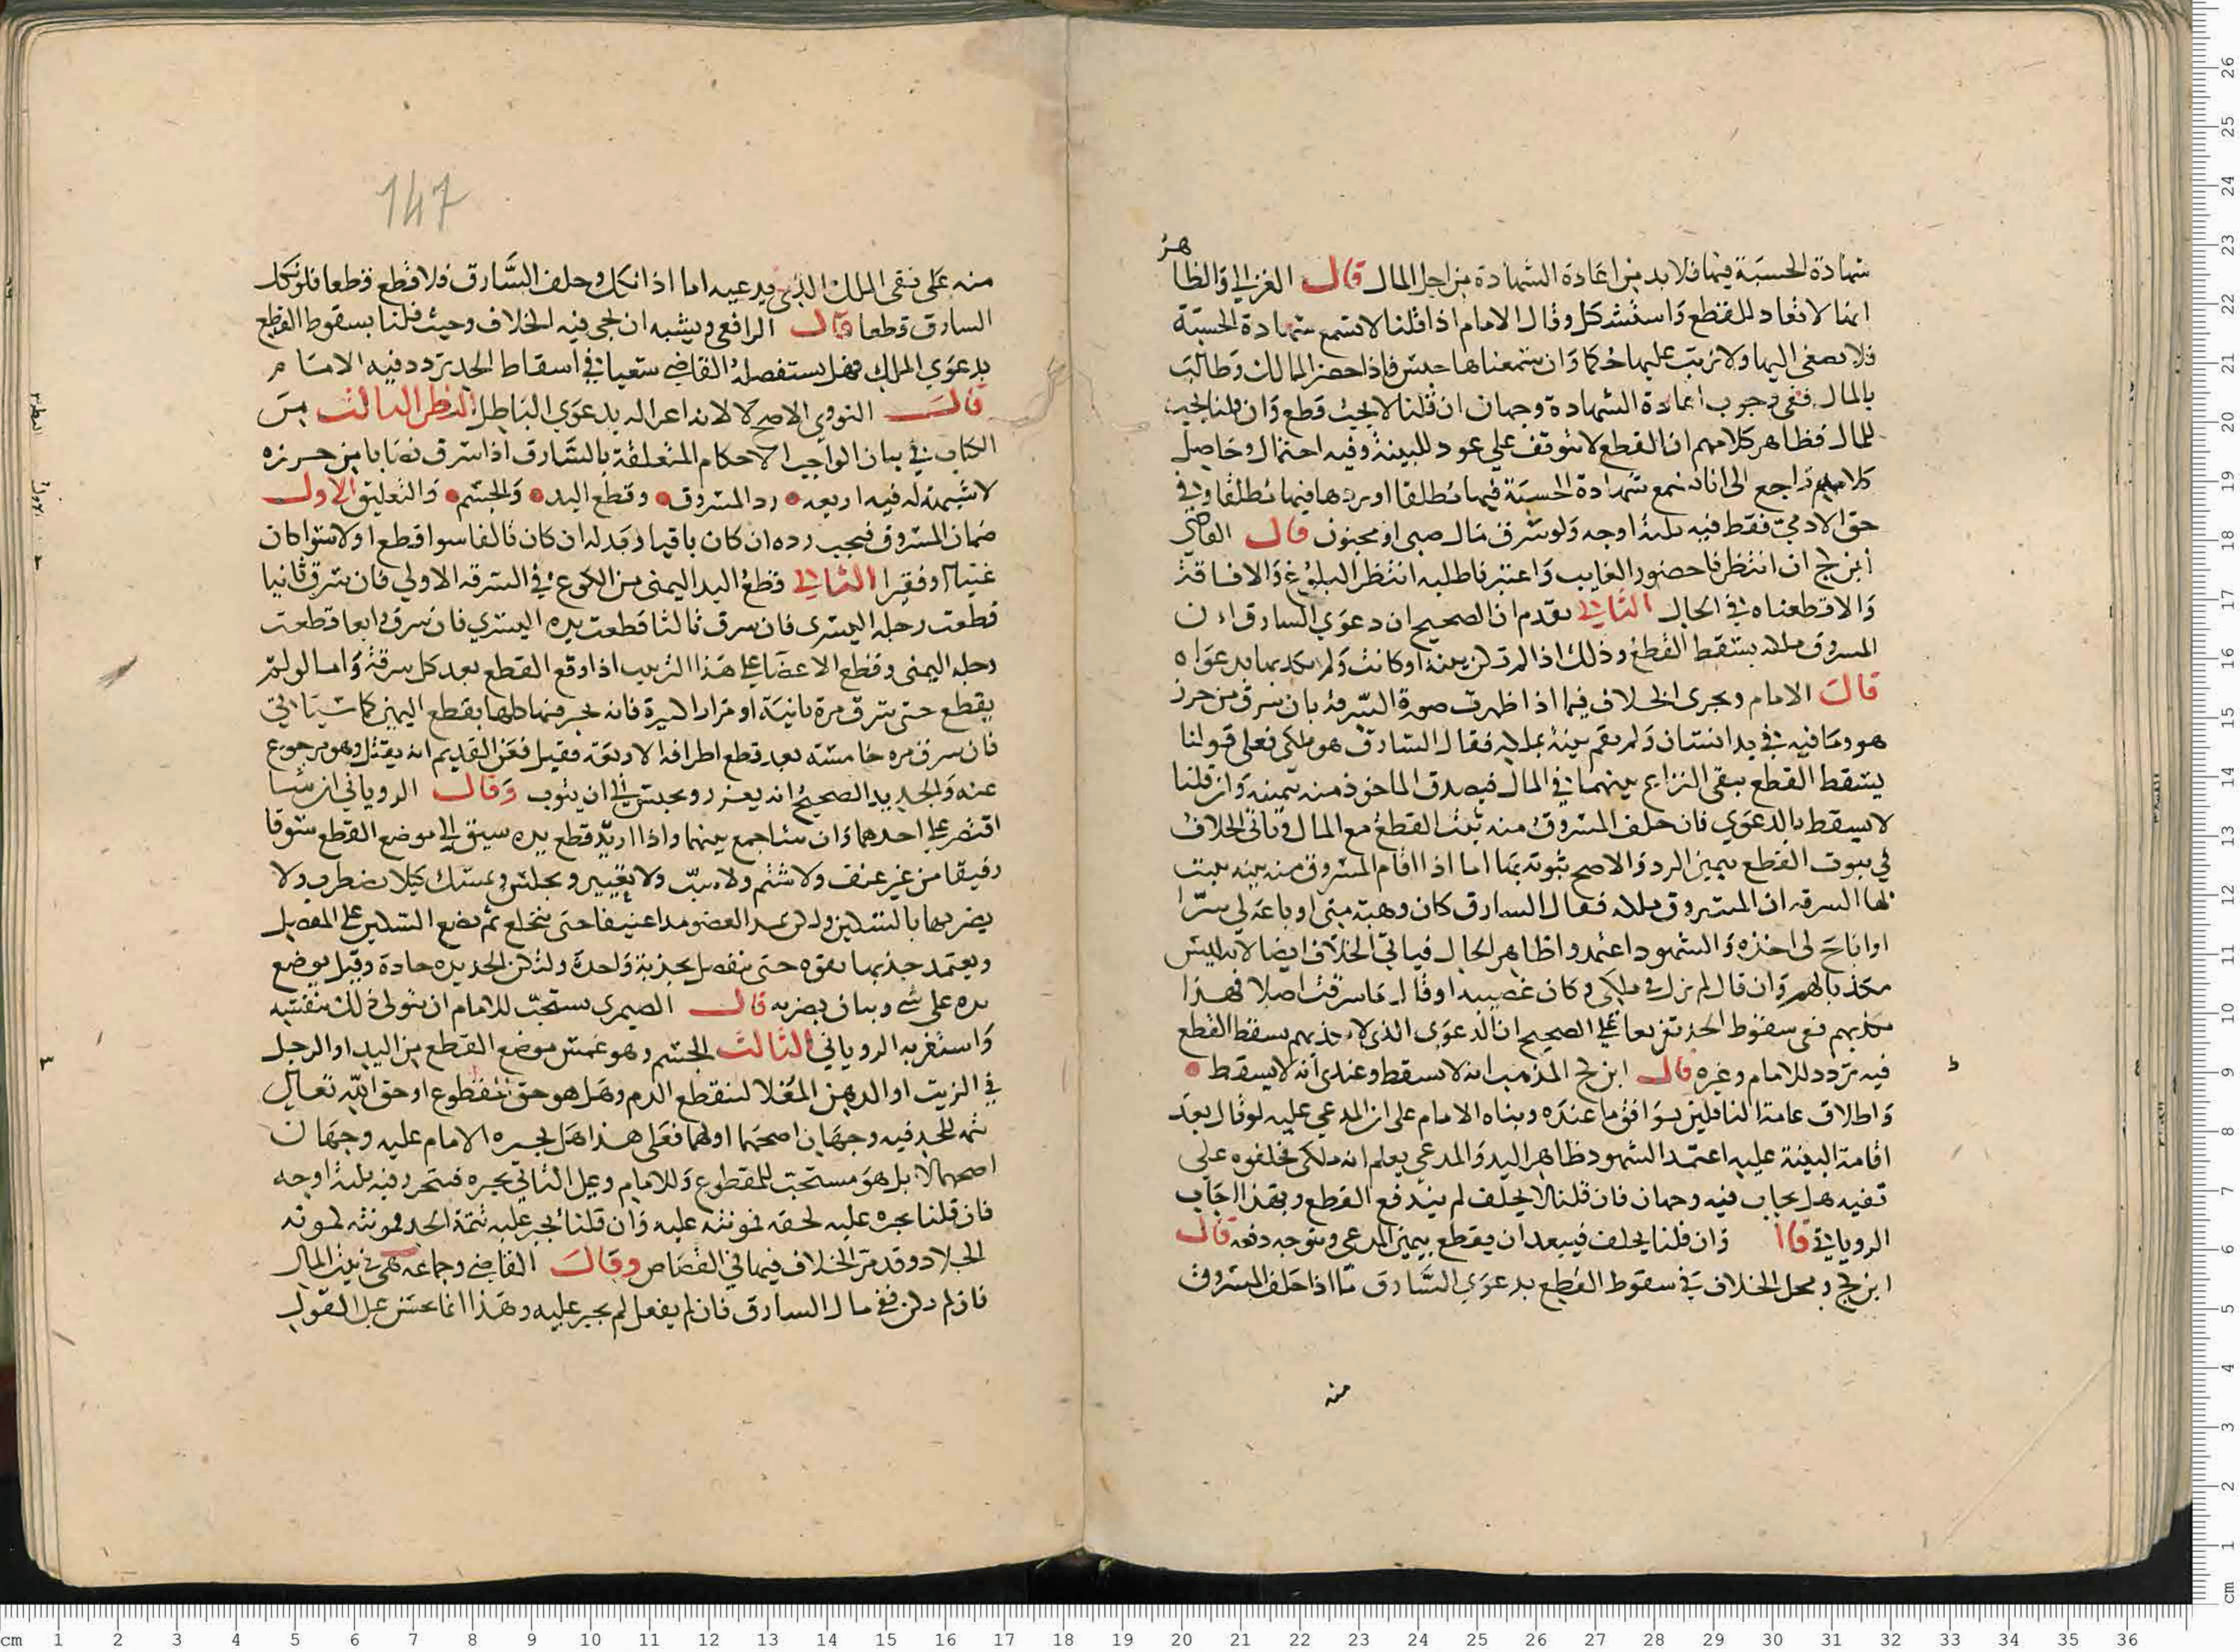 شهادة الحسبة فيها فلا بد من اعادة الشهادة من اجل المال قال الغزالي والظاهر
انها لا تعاد للقطع واستشكل وقال الامام اذا قلنا لا تسمع شهادة الحسبة
فلا يصغى اليها ولا نرتب عليها حكما وان سمعناها حبس فاذا حضر المالك وطالب
بالمال ففي وجوب اعادة الشهادة وجهان ان قلنا لا يجب قطع وان قلنا يجب
للمال فظاهر كلامهم ان القطع لا يتوقف على عود للبينة وفيه احتمال وحاصل
كلامهم راجع الى انا نسمع شهادة الحسبة فيها مطلقا او نردها فيها مطلقا وفي
حق الادمي فقط فيه ثلثة اوجه ولو سرق مال صبي او مجنون قال القاضي
ابن كج ان انتظرنا حضور الغايب واعتبرنا طلبه انتظر البلوغ والافاقة
والا قطعناه في الحال الثاني تقدم ان الصحيح ان دعوى السارق ان
المسروق ملكه يسقط القطع وذلك اذا لم تكن بينة او كانت ولم يكذبها بدعواه
قال الامام ويجرى الخلاف فيما اذا ظهرت صورة السرقة بان سرق من حرز
هو وما فيه في يد انسان ولم يقم بينة بملكه فقال السارق هو ملكي فعلى قولنا
يسقط القطع يبقى النزاع بينهما في المال فيصدق الماخوذ منه بيمينه وان قلنا
لا يسقط بالدعوى فان حلف المسروق منه يثبت القطع مع المال وياتي الخلاف
في ثبوت القطع بيمين الرد والاصح ثبوته بها اما اذا اقام المسروق منه بينة يثبت
بها السرقة ان المسروق ملكه فقال السارق كان وهبة مني او باعه لي سرا
او اباح لي اخذه والشهود اعتمدوا ظاهر الحال فياتي الخلاف ايضا لانه ليس
مكذبا لهم وان قال لم يزل في ملكي وكان غصبه او قال ما سرقت اصلا فهذا
يكذبهم ففي سقوط الحد تفريعا على الصحيح ان الدعوى الذي لا يكذبهم يسقط القطع
فيه تردد للامام وغيره قال ابن كج المذهب انه لا يسقط وعندي انه لا يسقط
واطلاق عامة الناقلين يوافق ما عنده وبناه الامام على ان المدعي عليه لو قال بعد
اقامة البينة عليه اعتمد الشهود ظاهر اليد والمدعي يعلم انه ملكي فحلفوه على
نفيه هل يجاب فيه وجهان فان قلنا لا يحلف لم يندفع القطع وبهذا اجاب
الروياني قال وان قلنا يحلف فيبعد ان يقطع بيمين المدعي ويتوجه دفعه قال
ابن كج ومحل الخلاف في سقوط القطع بدعوى السارق ما اذا حلف المسروق
منه
147
منه على نفي الملك الذي يدعيه اما اذا نكل وحلف السارق فلا قطع قطعا فلو نكل
السارق قطعا قال الرافعي ويشبه ان يجي فيه الخلاف وحيث قلنا بسقوط القطع
بدعوى الملك فهل يستفصله القاضي سعيا في اسقاط الحد تردد فيه الامام
قال النووي الاصح لا لانه اغرا له بدعوى الباطل النظر الثالث من
الكتاب في بيان الواجب الاحكام المتعلقة بالسارق اذا سرق نصابا من حرزه
لا شبهة له فيه اربعة رد المسروق وقطع اليد والحسم والتعليق الاول
ضمان المسروق فيجب رده ان كان باقيا وبدله ان كان تالفا سوا قطع او لا سوا كان
غنيا او فقيرا الثاني قطع اليد اليمنى من الكوع في السرقة الاولى فان سرق ثانيا
قطعت رجله اليسرى فان سرق ثالثا قطعت يده اليسرى فان سرق رابعا قطعت
رجله اليمنى وقطع الاعضا على هذا الترتيب اذا وقع القطع بعد كل سرقة واما لو لم
يقطع حتى سرق مرة ثانية او مرارا كثيرة فانه يجز فيها كلها بقطع اليمين كما سياتي
فان سرق مره خامسة بعد قطع اطرافه الاربعة فقيل فعن القديم انه يقتل وهو مرجوع
عنه والجديد الصحيح انه يعزر ويحبس الى ان يتوب وقال الروياني ان شا
اقتصر على احدهما وان شا جمع بينهما واذا اريد قطع يده سيق الى موضع القطع سوقا
رفيقا من غير عنف ولا شتم ولا سب ولا تغيير ويجلس ويمسك كيلا يضطرب ولا
يضربها بالسكين ولكن يمد العضو مدا عنيفا حتى ينخلع ثم يضع السكين على المفصل
ويعتمد جذبها بقوه حتى ينفصل بجذبة واحدة ولتكن الحديده حادة وقيل يوضع
يده على شي وبيان يضربه قال الصيمري يستحب للامام ان يتولى ذلك بنفسه
واستغربه الروياني الثالث الحسم وهو غمس موضع القطع من اليد او الرجل
في الزيت او الدهن المغلا لينقطع الدم وهل هو حق المقطوع او حق الله تعالى
تتمه للحد فيه وجهان اصحهما اولهما فعلى هذا هل يجبره الامام عليه وجهان
اصحهما لا بل هو مستحب للمقطوع وللامام وعلى الثاني يجبره فيتحرر فيه ثلثة اوجه
فان قلنا يجبره عليه لحقه فمونته عليه وان قلنا يجبر عليه تتمة الحد فمونته لمونة
الجلاد وقد مر الخلاف فيها في القصاص وقال القاضي وجماعة هي في بيت المال
فان لم يكن ففي مال السارق فان لم يفعل لم يجبر عليه وهذا انما يحسن على القول